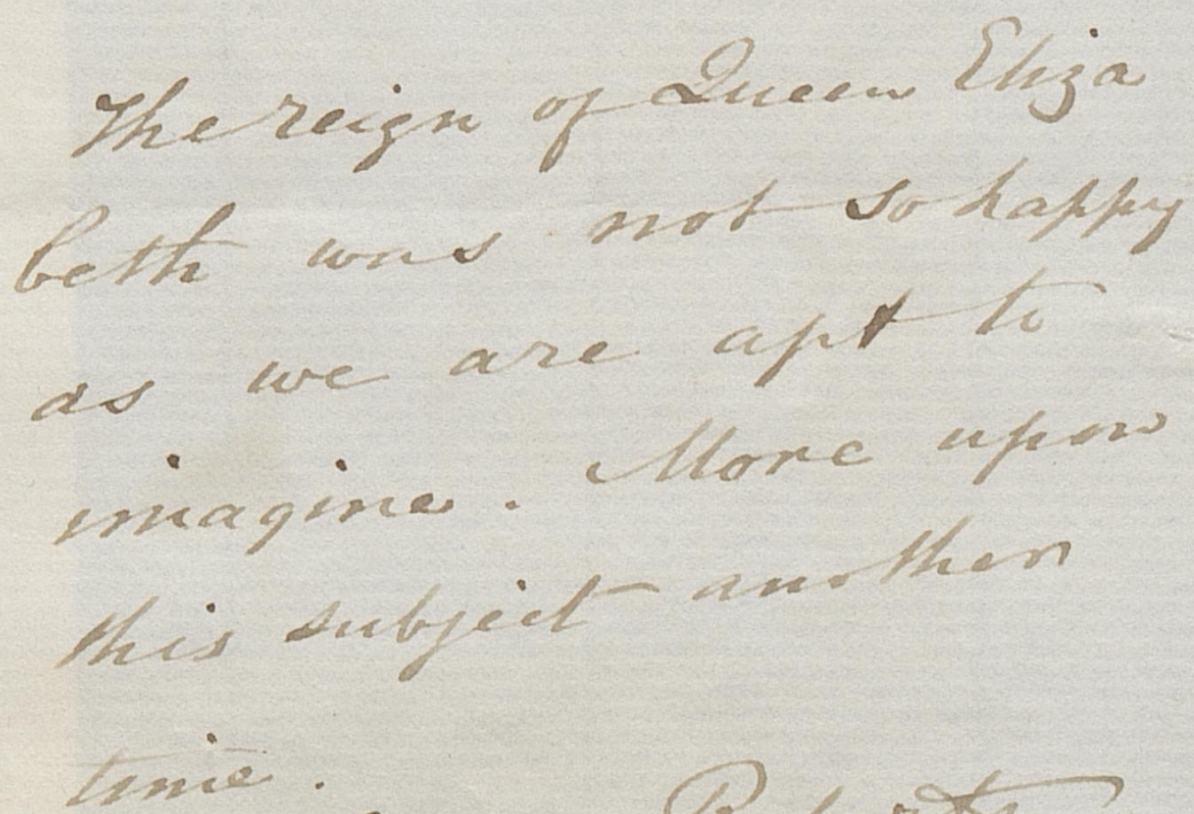 The reign of Queen Eliza
beth was not so happy
as we are apt to
imagine. More upon
this subject another
time.